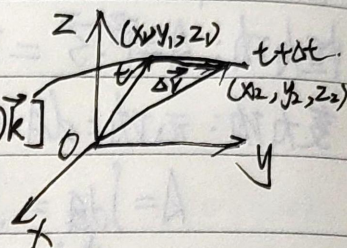 Z (x₁, y₁, z₁)
t t+Δt
Δr⃗ (x₂, y₂, z₂)
)k⃗]
O y
x